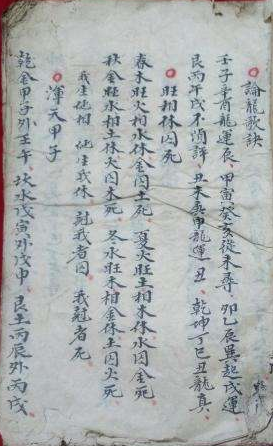 論龍歌訣
壬子辛酉龍運辰、甲寅癸亥從未尋、卯乙辰巽起戌運
艮丙午戌不須詳、丑未庚申龍運丑、乾坤丁巳丑龍真、
旺相休囚死
春木旺火相水休金囚土死 夏火旺土相木休水囚金死
秋金旺水相土休火囚木死 冬水旺木相金休土囚火死
我生他相 他生我休 尅我者囚 我尅者死
渾天甲子
乾金甲子外壬午、坎水戊寅外戊申、艮土丙辰外丙戌